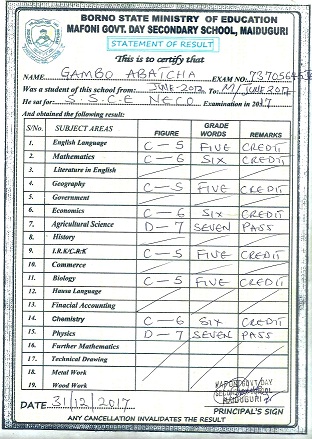 BORNO STATE MINISTRY OF EDUCATION
MAFONI GOVT. DAY SECONDARY SCHOOL, MAIDUGURI
STATEMENT OF RESULT
This is to certify that
NAME GAMBO ABAICHA EXAM NO.
Was a student of this school from: JUNE-2012 To: M/JUNE 2017
He sat for: S.S.C.E NECO Examination in 2017
And obtained the following result:
S/No. SUBJECT AREAS FIGURE GRADE WORDS REMARKS
1. English Language C-5 FIVE CREDIT
2. Mathematics C-6 SIX CREDIT
3. Literature in English
4. Geography C-5 FIVE CREDIT
5. Government
6. Economics C-6 SIX CREDIT
7. Agricultural Science D-7 SEVEN PASS
8. History
9. I.R.K/C.R.K C-5 FIVE CREDIT
10. Commerce
11. Biology C-5 FIVE CREDIT
12. Hausa Language
13. Finacial Accounting
14. Chemistry C-6 SIX CREDIT
15. Physics D-7 SEVEN PASS
16. Further Mathematics
17. Technical Drawing
18. Metal Work
19. Wood Work
MAFONI GOVT DAY
MAIDUGURI
DATE 31/12/2017 PRINCIPAL'S SIGN
ANY CANCELLATION INVALIDATES THE RESULT